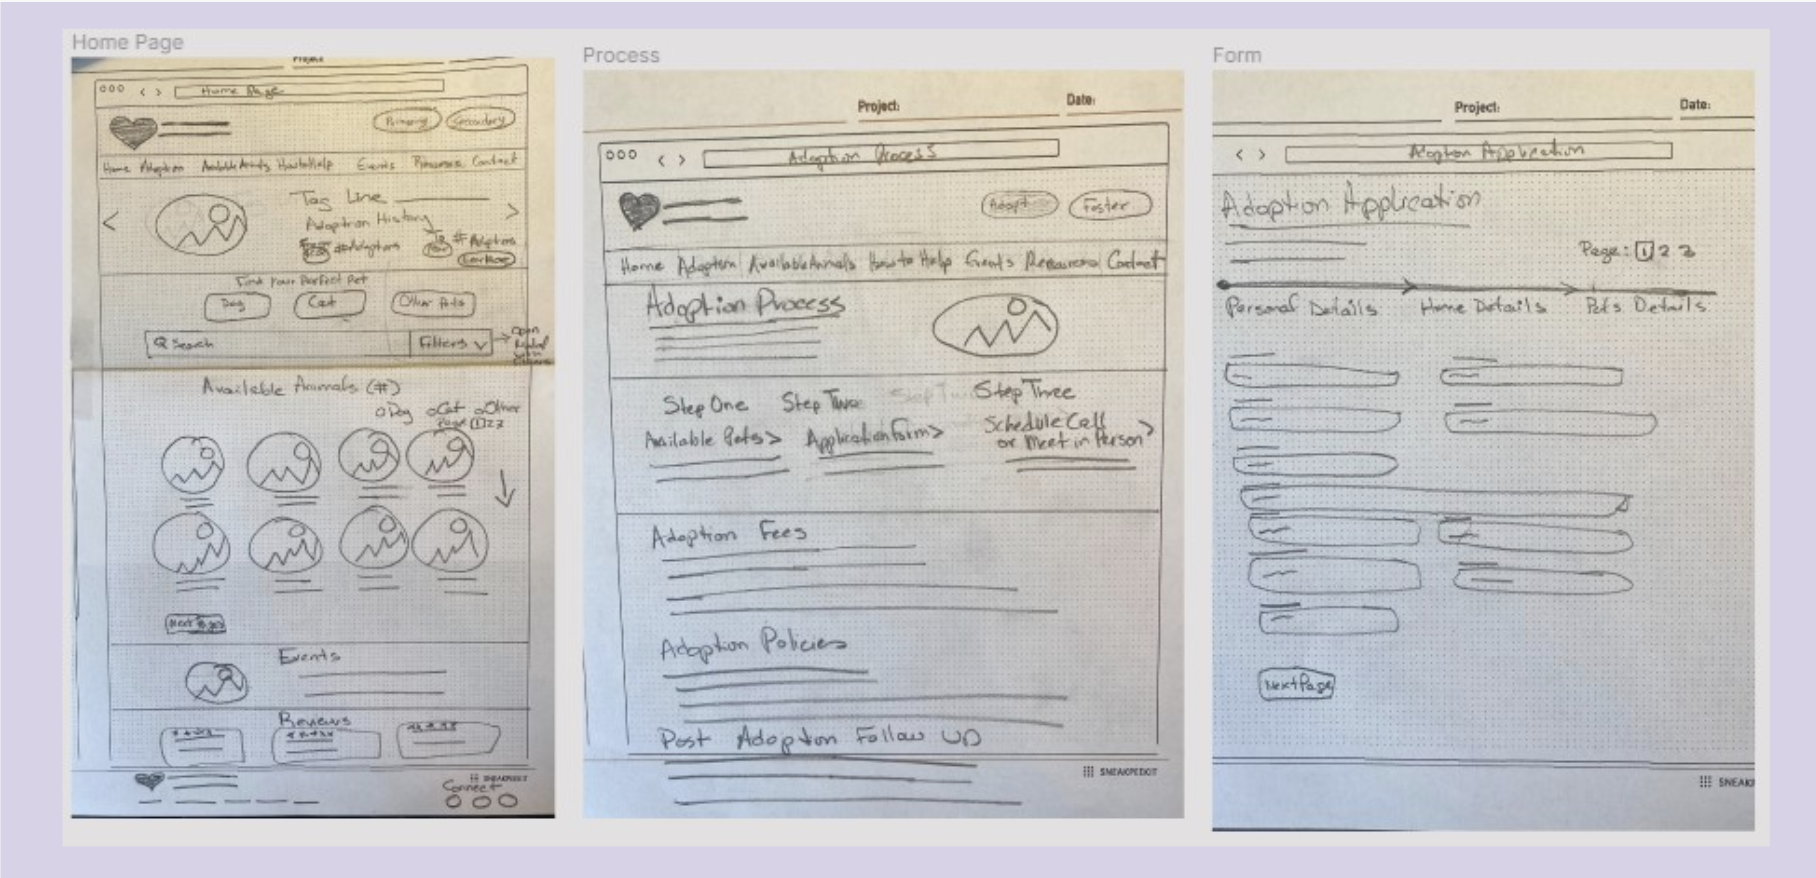 Home Page
Project
Home Page
Primary Secondary
Home Adoption Available Animals How to Help Events Resources Contact
Tag Line
Adoption History
# Adoptions # Adoptions
Find Your Perfect Pet
Dog Cat Other Pets
Search Filters
Open
Available Animals (#)
Dog Cat Other
Page 1 2 3
Next Page
Events
Reviews
SNEAKPEEKIT
Connect
Process
Project: Date:
Adoption Process
Adopt Foster
Home Adoption Available Animals How to Help Events Resources Contact
Adoption Process
Step One Step Two Step Three
Available Pets > Application Form > Schedule Call
or Meet in Person >
Adoption Fees
Adoption Policies
Post Adoption Follow UP
SNEAKPEEKIT
Form
Project: Date:
Adoption Application
Adoption Application
Page: 1 2 3
Personal Details Home Details Pets Details
Next Page
SNEAK